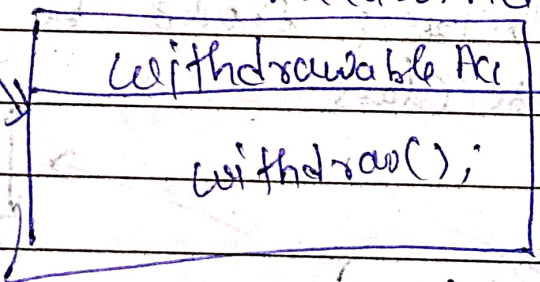 Withdrawable Acc
withdraw();